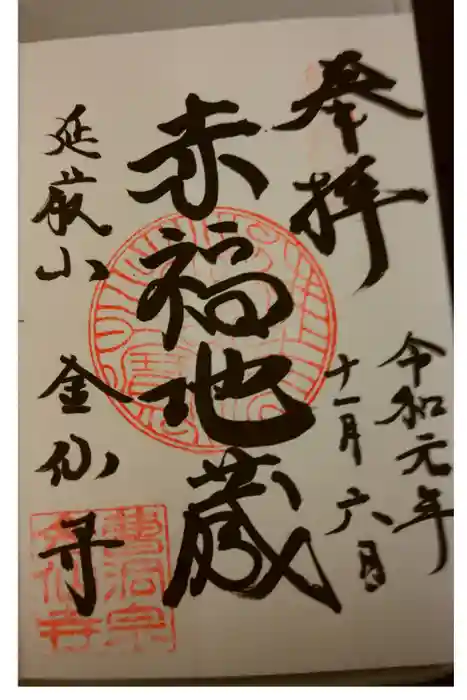 奉拝
令和元年
十一月六日
赤福地蔵
延巌山 金仙寺
曹洞宗
金仙寺